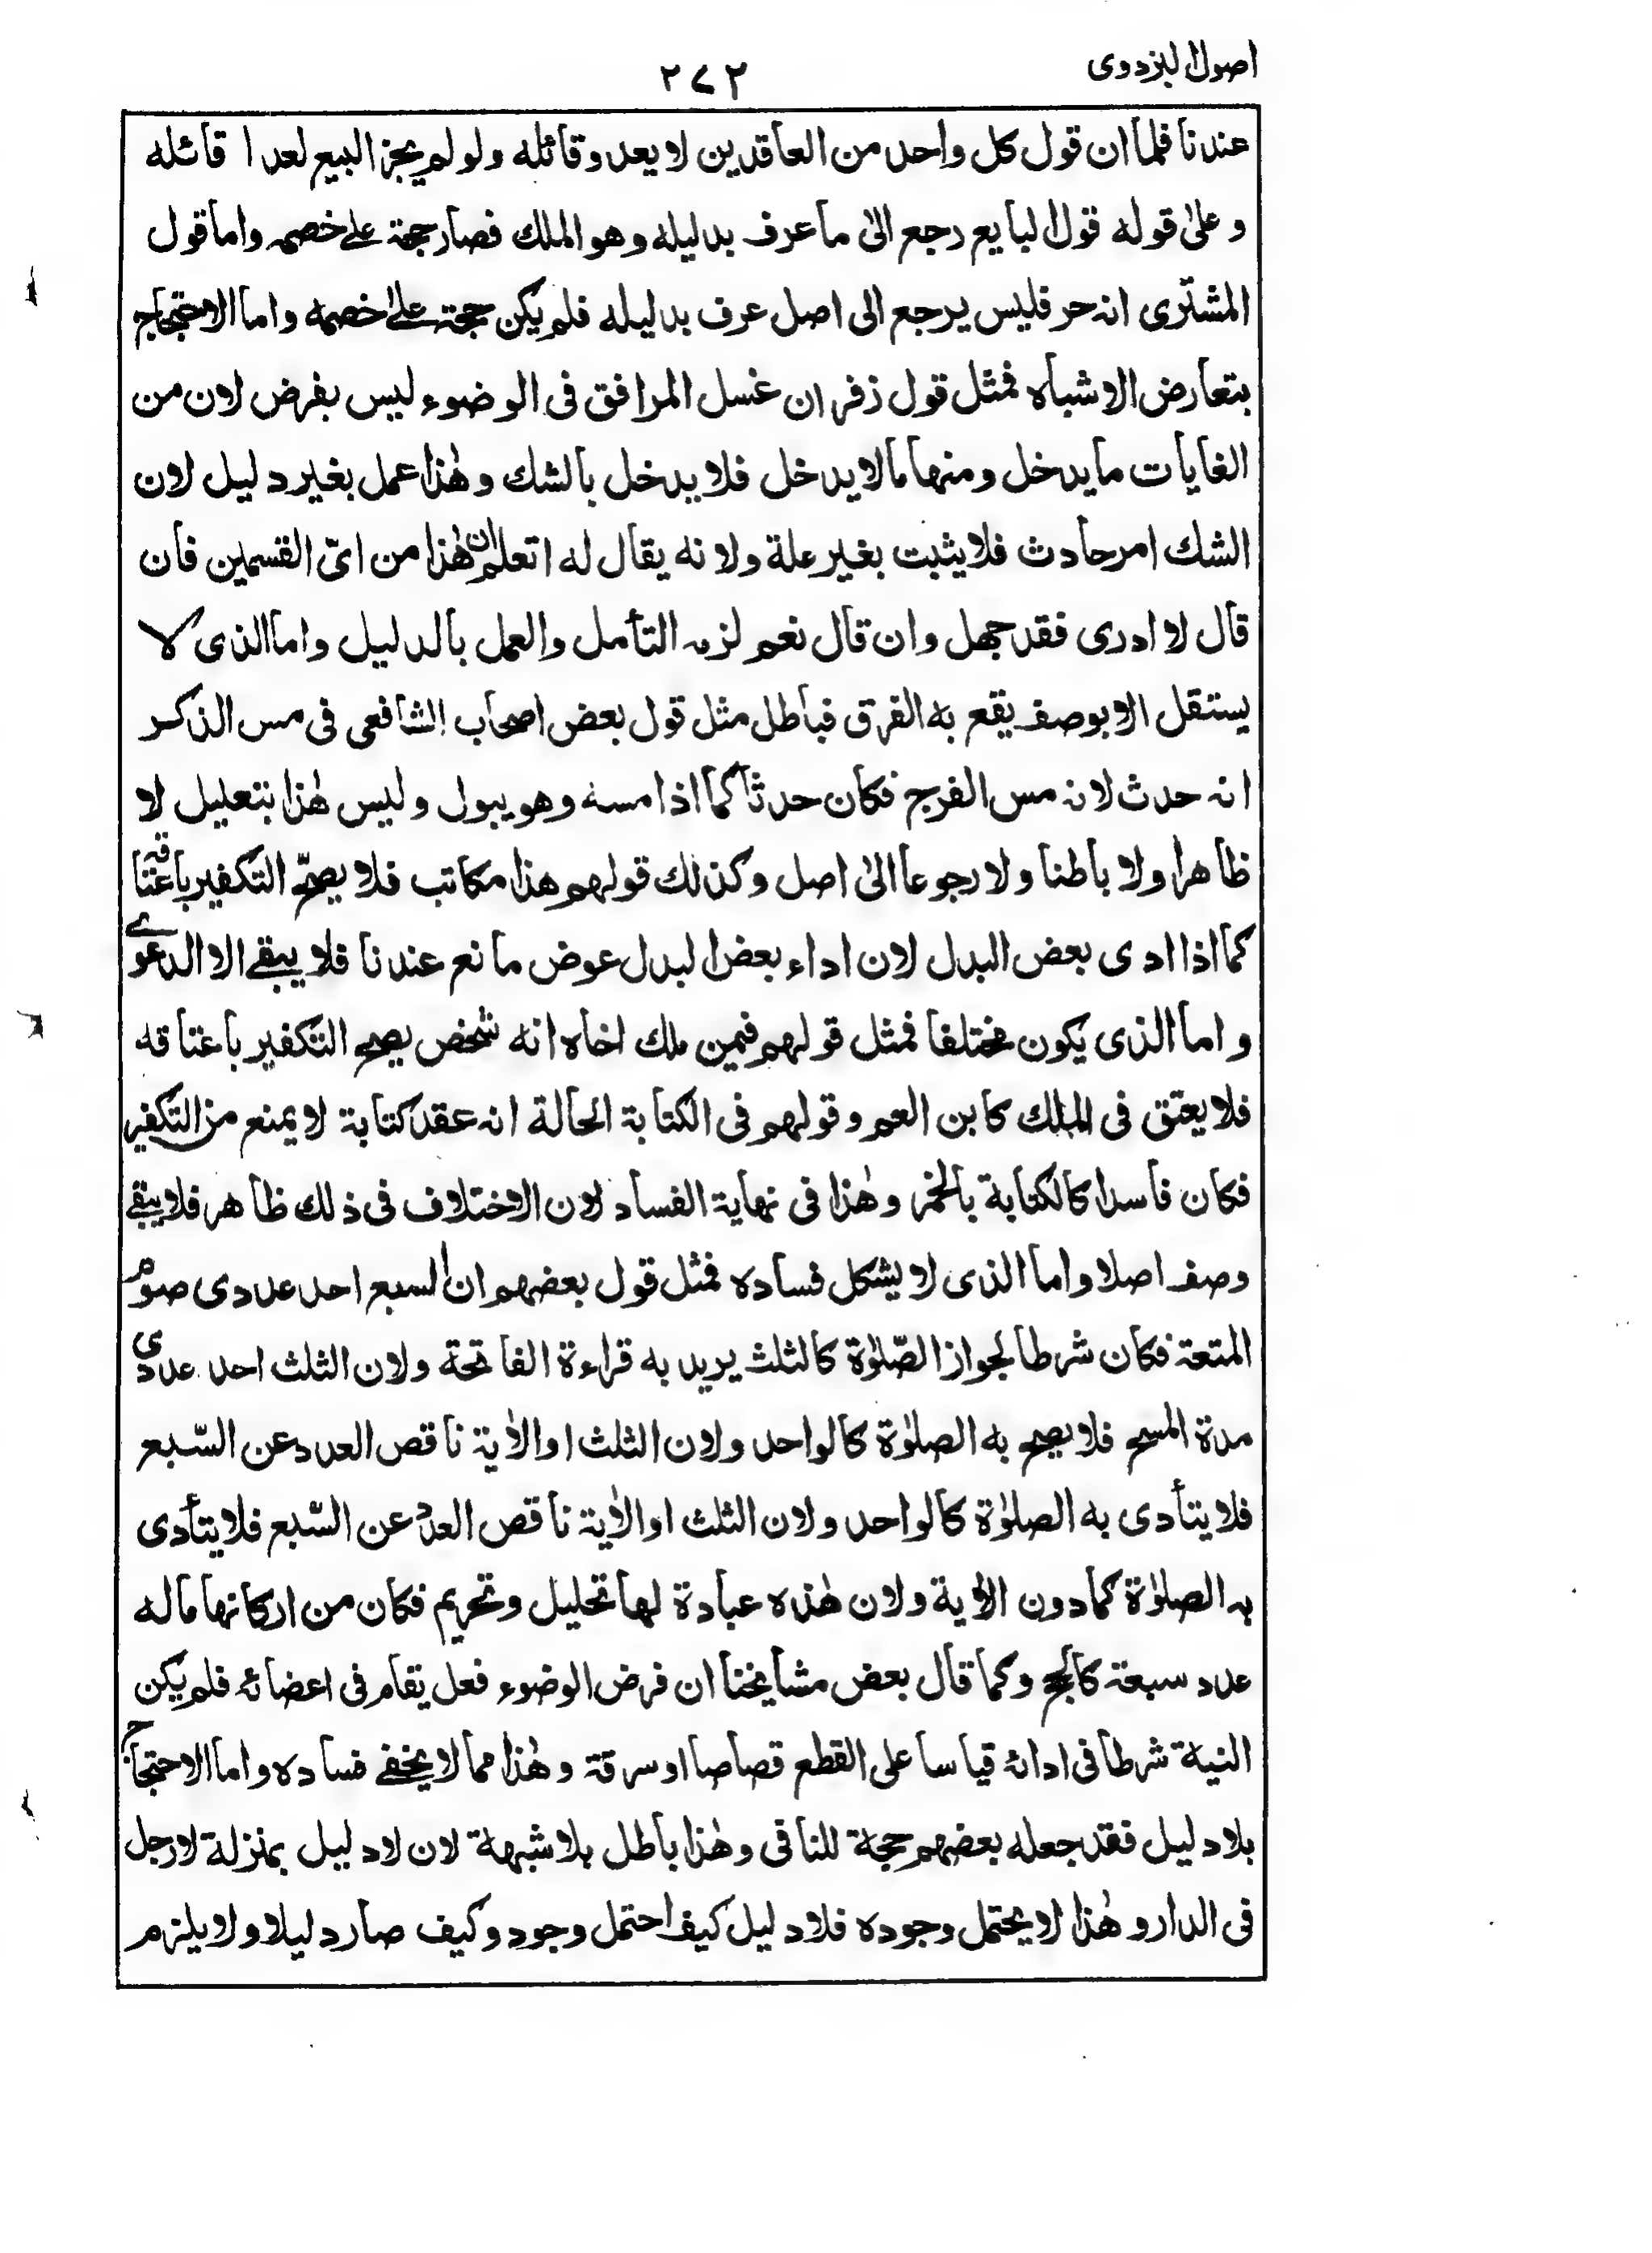 اصول البزدوى
٢٧٢
عندنا فلما ان قول كل واحد من العاقدين لا يعدو قائله ولو لم يجز البيع لعدا قائله
و علىٰ قوله قول البايع رجع الىٰ ما عرف بدليله وهو الملك فصار حجة على خصمه واما قول
المشترى انه حر فليس يرجع الى اصل عرف بدليله فلم يكن حجة علىٰ خصمه واما الاحتجاج
بتعارض الاشباه فمثل قول زفر ان غسل المرافق فى الوضوء ليس بفرض لان من
الغايات ما يدخل ومنها ما لا يدخل فلا يدخل بالشك وهٰذا عمل بغير دليل لان
الشك امر حادث فلا يثبت بغير علة ولانه يقال له اتعلم ان هٰذا من اىّ القسمين فان
قال لا ادرى فقد جهل وان قال نعم لزمه التأمل والعمل بالدليل واما الذى لا
يستقل الا بوصف يقع به الفرق فباطل مثل قول بعض اصحاب الشافعى فى مس الذكر
انه حدث لانه مس الفرج فكان حدثا كما اذا مسه وهو يبول وليس هٰذا بتعليل لا
ظاهرا ولا باطنا ولا رجوعا الىٰ اصل وكذلك قولهم هذا مكاتب فلا يصحّ التكفير باعتاقه
كما اذا ادى بعض البدل لان اداء بعض البدل عوض مانع عندنا فلا يبقى الا الدعوے
واما الذى يكون مختلفا فمثل قولهم فيمن ملك اخاه انه شخص يصح التكفير باعتاقه
فلا يعتق فى الملك كابن العم وقولهم فى الكتابة الحالة انه عقد كتابة لا يمنع من التكفير
فكان فاسدا كالكتابة بالخمر وهٰذا فى نهاية الفساد لان الاختلاف فى ذلك ظاهر فلا يبقى
وصف اصلا واما الذى لا يشكل فساده فمثل قول بعضهم ان السبع احد عددى صوم
المتعة فكان شرطا لجواز الصّلوٰة كالثلث يريد به قراءة الفاتحة ولان الثلث احد عددى
مدة المسح فلا يصح به الصلوٰة كالواحد ولان الثلث او الاٰية ناقص العدد عن السّبع
فلا يتأدى به الصلوٰة كالواحد ولان الثلث او الاٰية ناقص العدد عن السّبع فلا يتأدى
به الصلوٰة كما دون الاٰية ولان هٰذه عبادة لها تحليل وتحريم فكان من اركانها ما له
عدد سبعة كالحج وكما قال بعض مشايخنا ان فرض الوضوء فعل يقام فى اعضائه فلم يكن
النية شرطا فى ادائه قياسا على القطع قصاصا او سرقة وهٰذا مما لا يخفى فساده واما الاحتجاج
بلا دليل فقد جعله بعضهم حجة للنافى وهٰذا باطل بلا شبهة لان لا دليل بمنزلة لا رجل
فى الدار وهٰذا لا يحتمل وجوده فلا دليل كيف احتمل وجود وكيف صار دليلا ولا يلزم